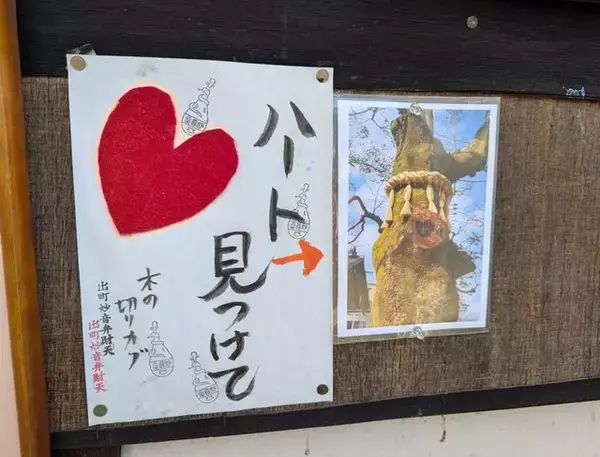 ハート
見つけて
木の
切りカブ
出町妙音弁財天
出町妙音弁財天